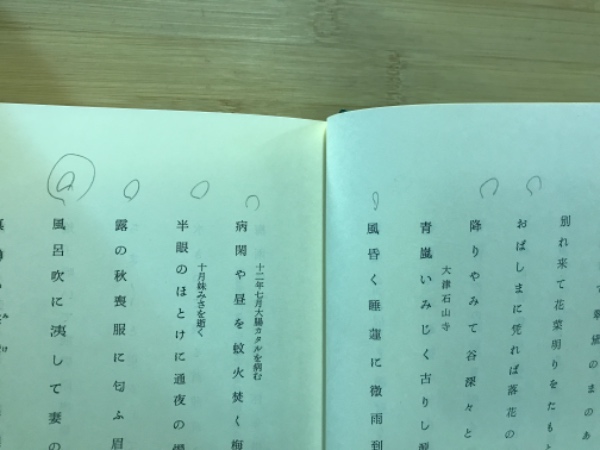 別れ来て花菜明りをたもと
おばしまに凭れば落花の
降りやみて谷深々と
大津石山寺
青嵐いみじく古りし
風昏く睡蓮に微雨到
十二年七月大腸カタルを病む
病閑や昼を蚊火焚く梅
十月妹みさを逝く
半眼のほとけに通夜の
露の秋喪服に匂ふ眉
風呂吹に洟して妻の